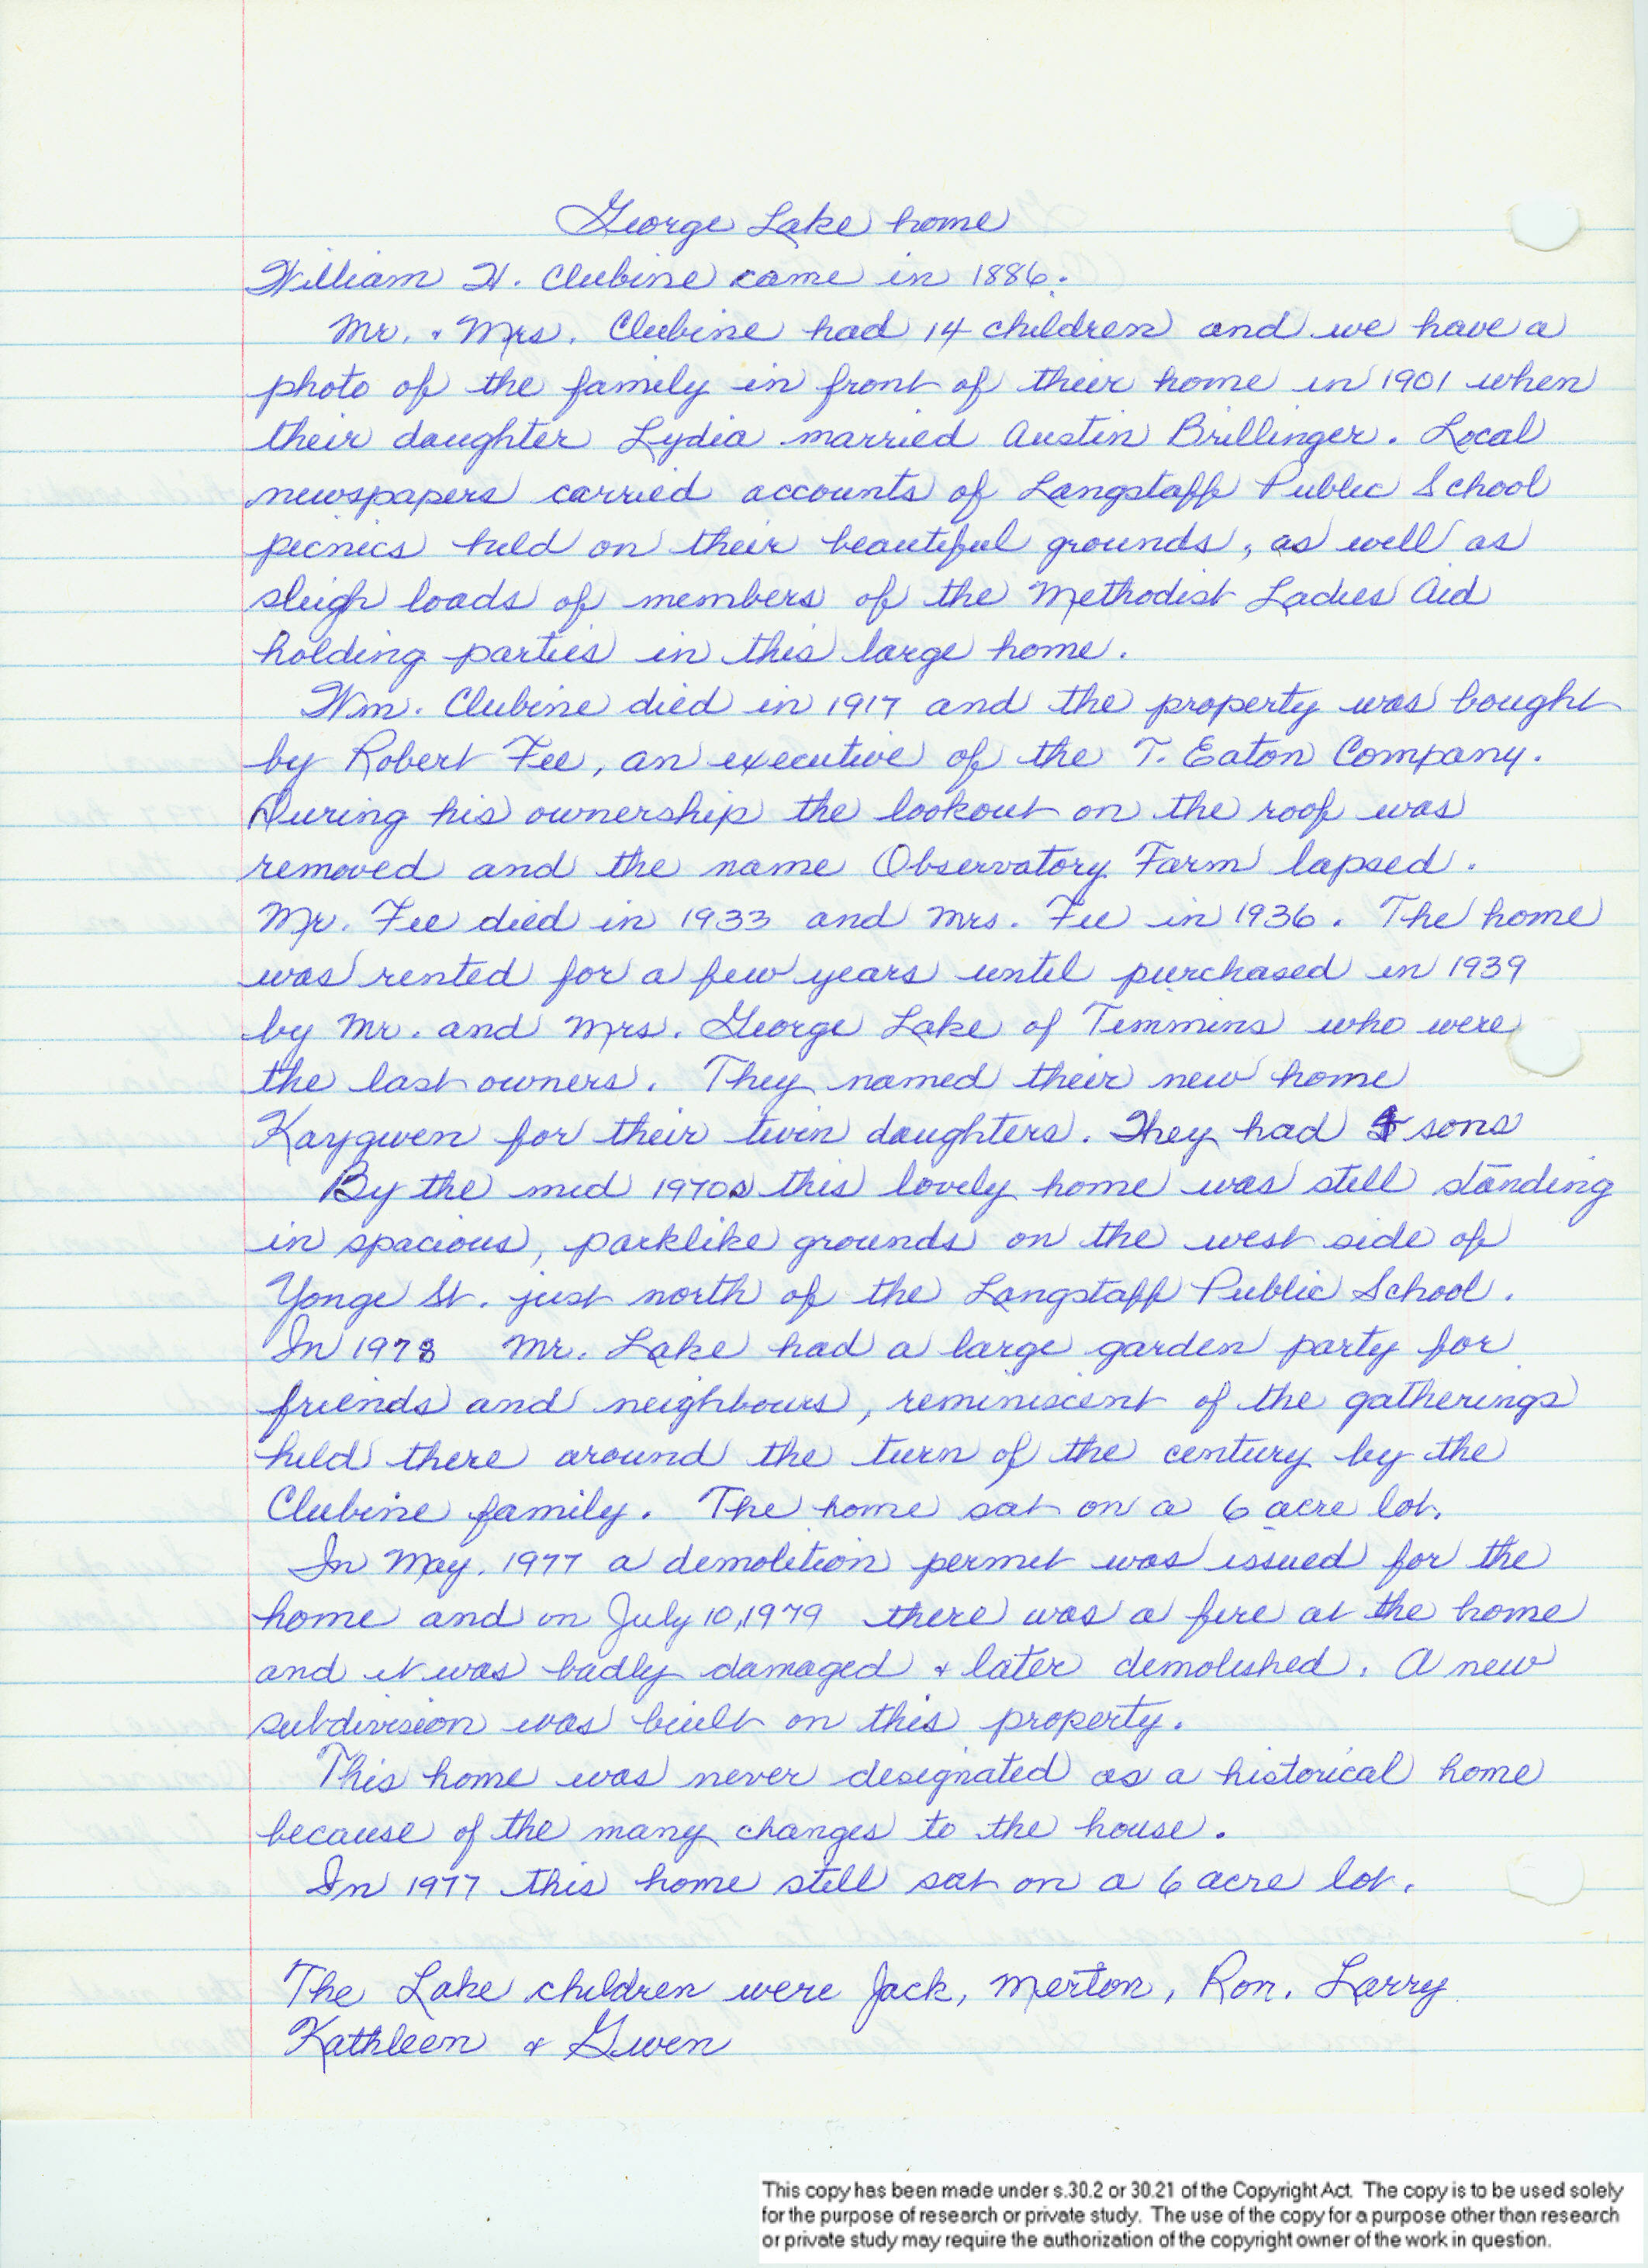 George Lake home
William H. Clubine came in 1886.
Mr. & Mrs. Clubine had 14 children and we have a
photo of the family in front of their home in 1901 when
their daughter Lydia married Austin Brillinger. Local
newspapers carried accounts of Langstaff Public School
picnics held on their beautiful grounds, as well as
sleigh loads of members of the Methodist Ladies Aid
holding parties in this large home.
Wm. Clubine died in 1917 and the property was bought
by Robert Fee, an executive of the T. Eaton Company.
During his ownership the lookout on the roof was
removed and the name Observatory Farm lapsed.
Mr. Fee died in 1933 and Mrs. Fee in 1936. The home
was rented for a few years until purchased in 1939
by Mr. and Mrs. George Lake of Timmins who were
the last owners. They named their new home
Kaygwen for their twin daughters. They had 4 sons
By the mid 1970s this lovely home was still standing
in spacious, parklike grounds on the west side of
Yonge St. just north of the Langstaff Public School.
In 1978 Mr. Lake had a large garden party for
friends and neighbours, reminiscent of the gatherings
held there around the turn of the century by the
Clubine family. The home sat on a 6 acre lot.
In May, 1977 a demolition permit was issued for the
home and on July 10, 1979 there was a fire at the home
and it was badly damaged & later demolished. A new
subdivision was built on this property.
This home was never designated as a historical home
because of the many changes to the house.
In 1977 this home still sat on a 6 acre lot.
The Lake children were Jack, Merton, Ron, Larry
Kathleen & Gwen
This copy has been made under s.30.2 or 30.21 of the Copyright Act. The copy is to be used solely
for the purpose of research or private study. The use of the copy for a purpose other than research
or private study may require the authorization of the copyright owner of the work in question.